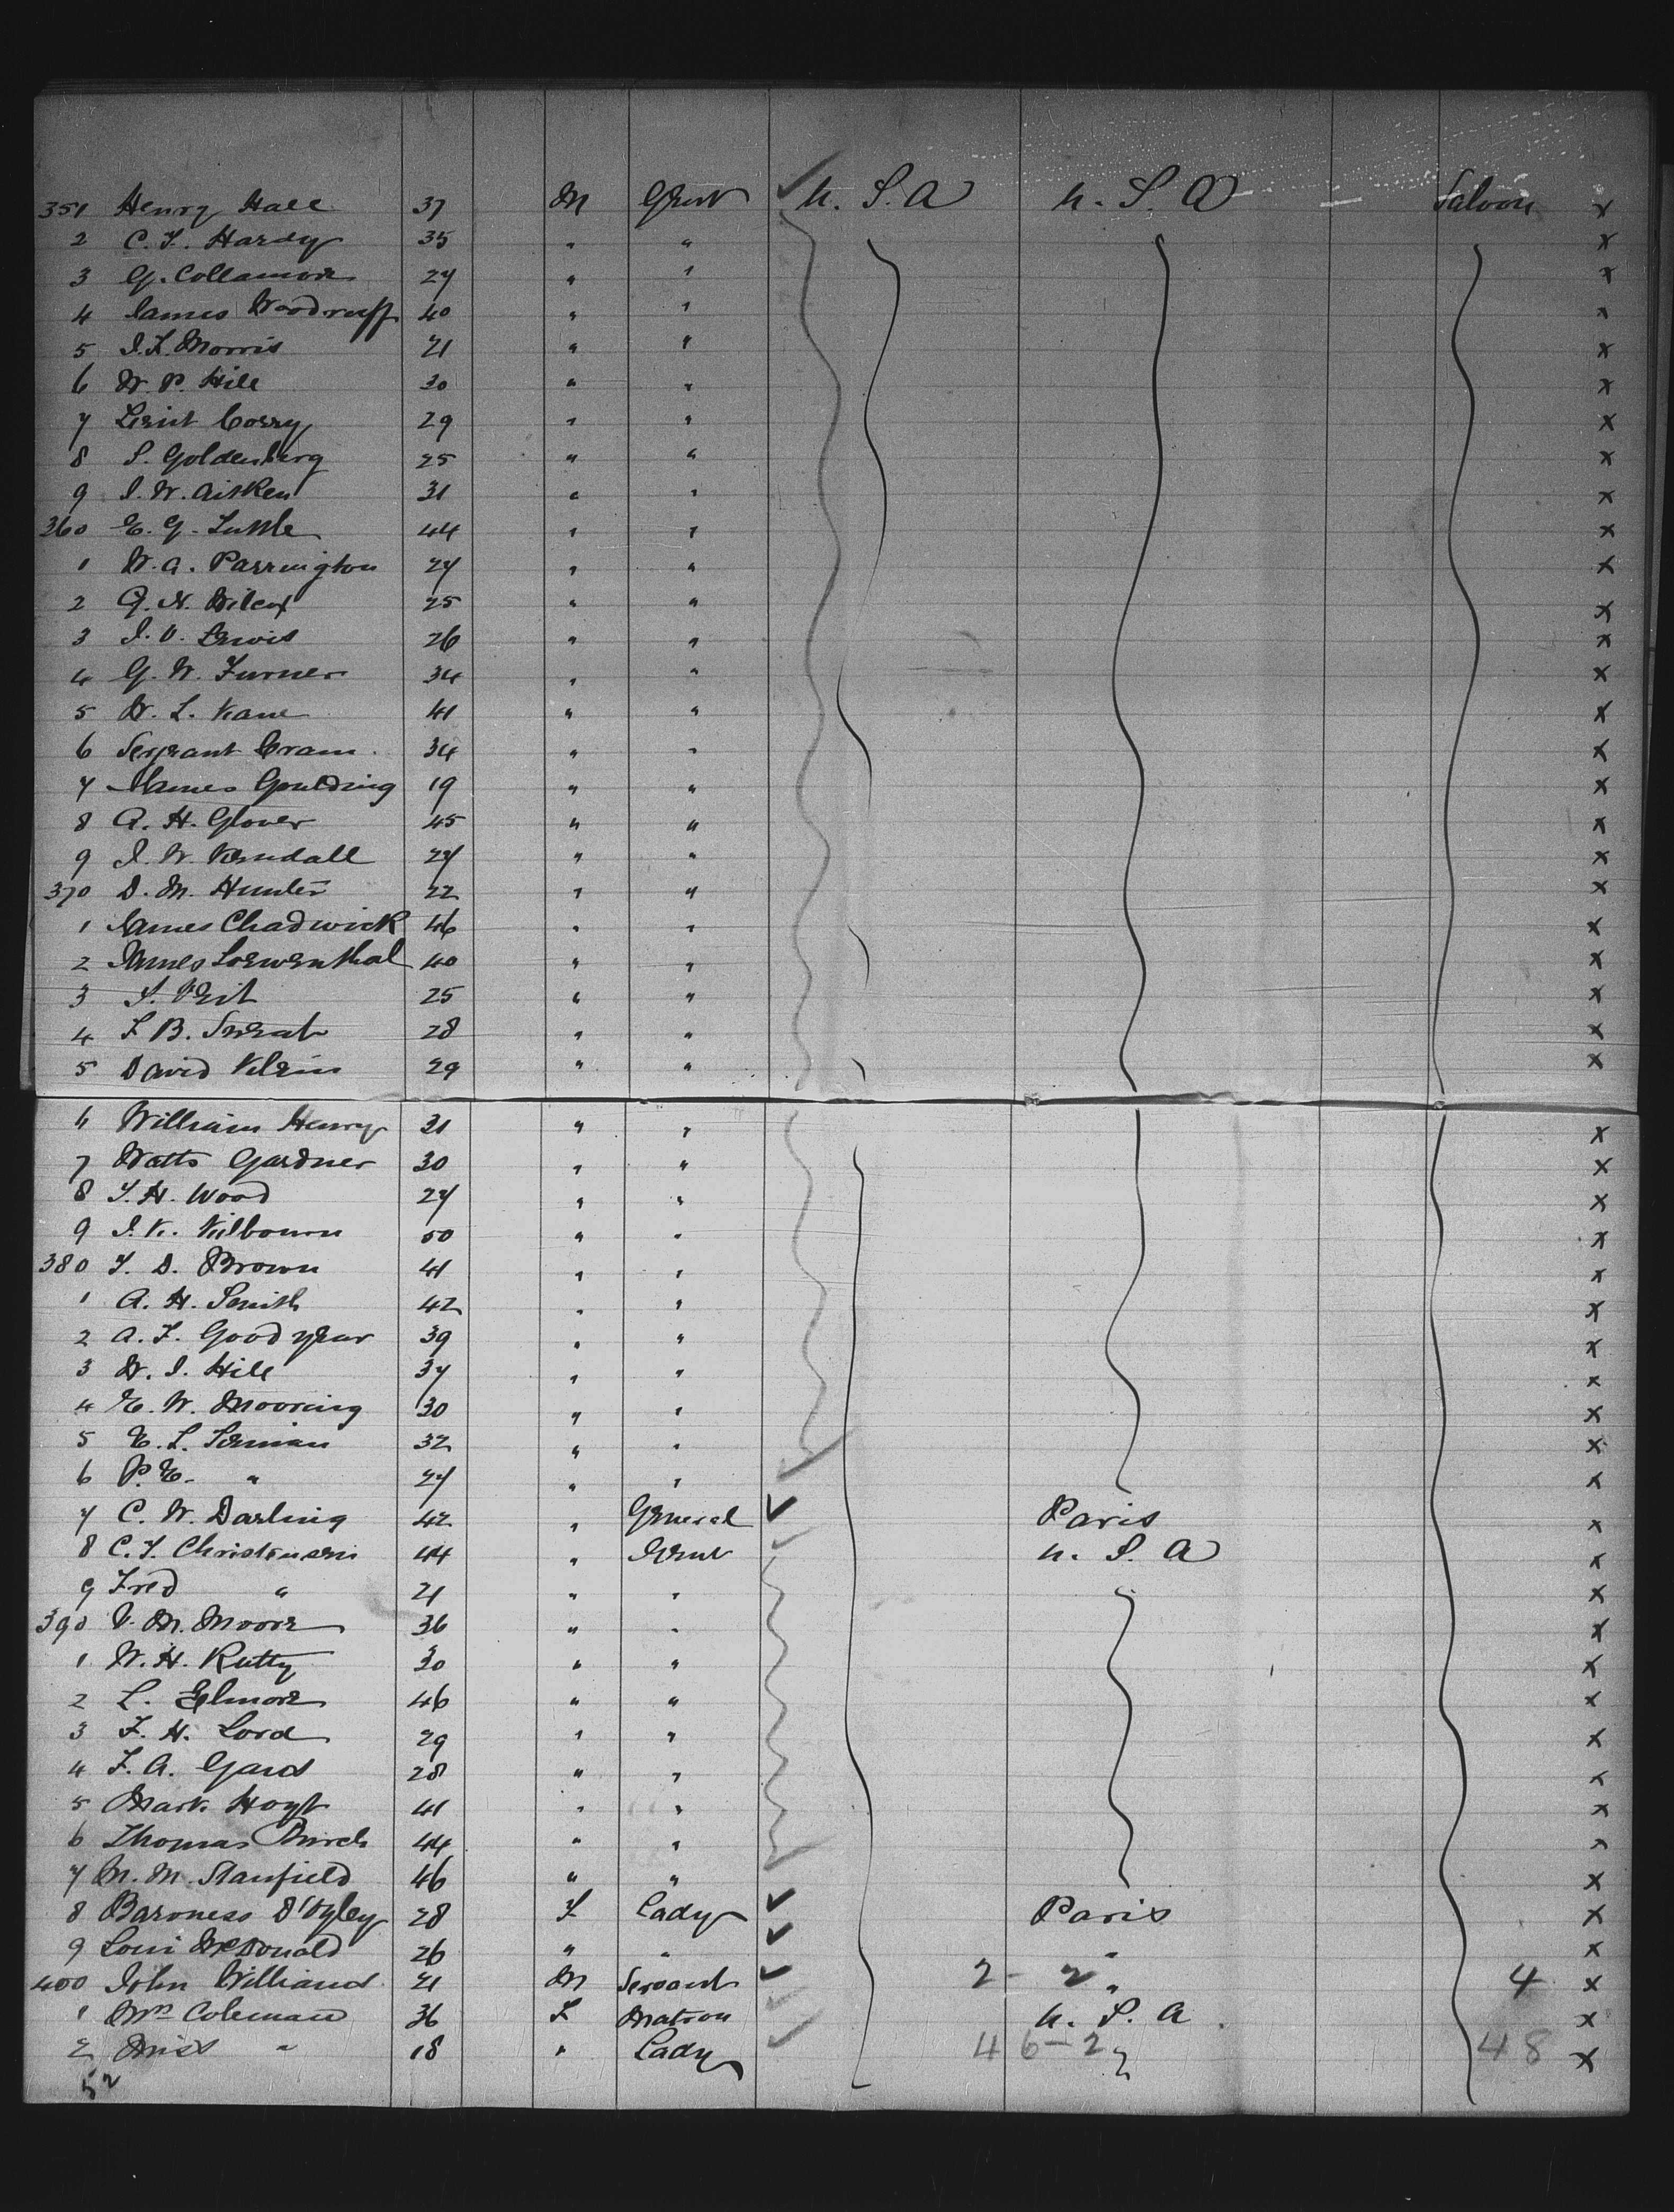 351 Henry Hall 37 M Gent U. S. A U. S. A Saloon x
2 C. F. Hardy 35 " " x
3 G. Collamore 27 " " x
4 James Woodruff 40 " " x
5 J. F. Morris 21 " " x
6 W. P. Hill 30 " " x
7 Lieut Corry 29 " " x
8 S. Goldenberg 25 " " x
9 J. W. Aitken 31 " " x
360 E. G. Tuttle 44 " " x
1 W. A. Parrington 27 " " x
2 G. N. Wilcox 25 " " x
3 J. V. Lewis 26 " " x
4 G. W. Turner 34 " " x
5 W. L. Kane 41 " " x
6 Sergeant Cram 34 " " x
7 James Goulding 19 " " x
8 A. H. Glover 45 " " x
9 J. W. Kendall 27 " " x
370 D. M. Hunter 22 " " x
1 James Chadwick 46 " " x
2 James Loewenthal 40 " " x
3 S. Veit 25 " " x
4 F. B. 28 " " x
5 David Klein 29 " " x
6 William Henry 31 " " x
7 Watts Gardner 30 " " x
8 T. H. Wood 27 " " x
9 J. K. Kilbourn 50 " " x
380 T. D. Brown 41 " " x
1 A. H. Smith 42 " " x
2 A. F. Goodyear 39 " " x
3 W. J. Hill 37 " " x
4 E. W. Mooring 30 " " x
5 E. L. 32 " " x
6 P. E. " 27 " " x
7 C. W. Darling 42 " General Paris x
8 C. T. Christensen 44 " Gent U. S. A x
9 Fred " 21 " " x
390 V. M. Moore 36 " " x
1 W. H. Rutty 30 " " x
2 L. Elmore 46 " " x
3 F. H. Lord 29 " " x
4 F. A. Gard 28 " " x
5 Mark Hoyt 41 " " x
6 Thomas Birch 44 " " x
7 M. M. Stanfield 46 " " x
8 Baroness D'Oyley 28 F Lady Paris x
9 Loui McDonald 26 " " " x
400 John Williams 21 M Servant 2 - 2 " 4 x
1 Mrs Coleman 36 F Matron U. S. A x
2 Miss " 18 " Lady 46-2 48 x
52